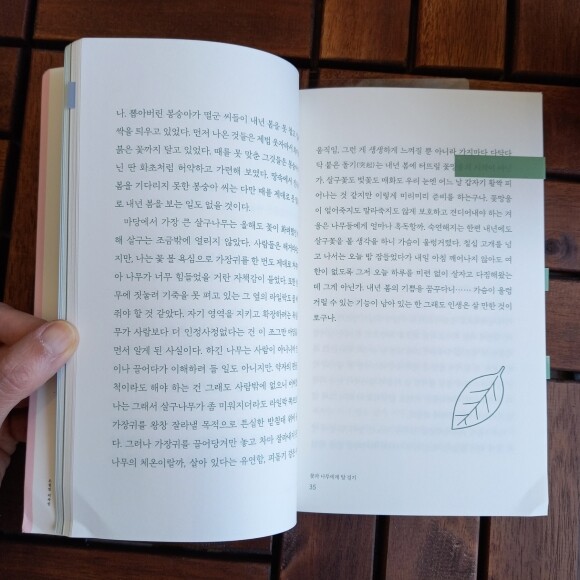 나. 뽑아버린 봉숭아가 떨군 씨들이 내년 봄을 못
싹을 틔우고 있었다. 먼저 나온 것들은 제법 웃자라서
붉은 꽃까지 달고 있었다. 때를 못 맞춘 그것들은 봉숭아
닌 딴 화초처럼 허약하고 가련해 보였다. 땅속에서
봄을 기다리지 못한 봉숭아 씨는 다만 때를 제대로
로 내년 봄을 보는 일도 없을 것이다.
마당에서 가장 큰 살구나무는 올해도 꽃이
해 살구는 조금밖에 열리지 않았다. 사람들은
지만, 나는 꽃 볼 욕심으로 가장귀를 한 번도 제대로
아 나무가 너무 힘들었을 거란 자책감이 들었다.
무에 짓눌려 기죽을 못 펴고 있는 그 옆의 라일락도
쥐야 할 것 같았다. 자기 영역을 지키고 확장하려는
무가 사람보다 더 인정사정없다는 건 이 조그만
면서 알게 된 사실이다. 하긴 나무는 사람이 아니니까
이나 끌어다가 이해하려 들 일도 아니지만, 약자의
척이라도 해야 하는 건 그래도 사람밖에 없으니
나는 그래서 살구나무가 좀 미워지더라도 라일락
가장귀를 왕창 잘라낼 목적으로 튼실한 밤줄에
다. 그러나 가장귀를 끌어당겨만 놓고 차마 잘라내
나무의 체온이랄까, 살아 있다는 유연함, 피돌기
움직임, 그런 게 생생하게 느껴질 뿐 아니라 가지마다
막 붙은 돌기(突起)는 내년 봄에 터뜨릴 꽃망울
가. 살구꽃도 벚꽃도 매화도 우리 눈엔 어느 날 갑자기 활짝 피
어나는 것 같지만 이렇게 미리미리 준비를 하는구나. 꽃망울
이 얼어죽지도 말라죽지도 않게 보호하고 견디어내야 하는 겨
울은 나무들에게 얼마나 혹독할까. 숙연해지는 한편 내년에도
살구꽃을 볼 생각을 하니 가슴이 울렁거렸다. 칠십 고개를 넘
고 나서는 오늘 밤 잠들었다가 내일 아침 깨어나지 않아도 여
한이 없도록 그저 오늘 하루를 미련 없이 살자고 다짐해왔는
데 그게 아닌가. 내년 봄의 기쁨을 꿈꾸다니…… 가슴이 울렁
거릴 수 있는 기능이 남아 있는 한 그래도 인생은 살 만한 것이
로구나.
35